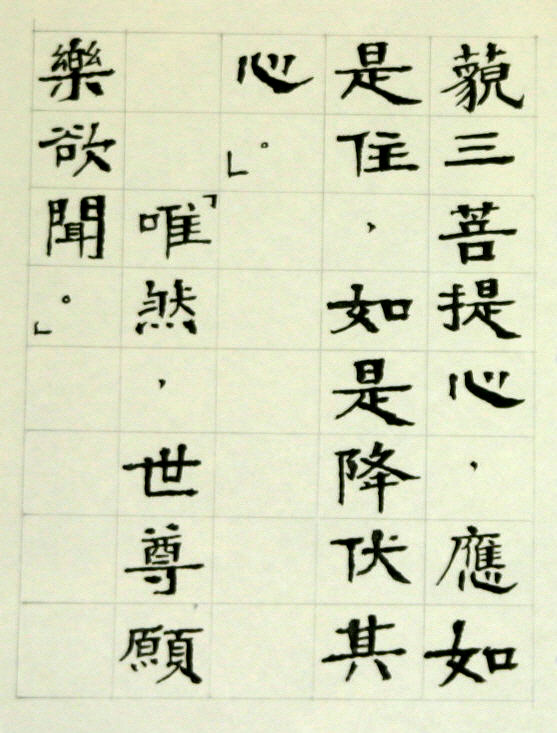 藐三菩提心,應如
是住,如是降伏其
心。」
「唯然,世尊願
樂欲聞。」